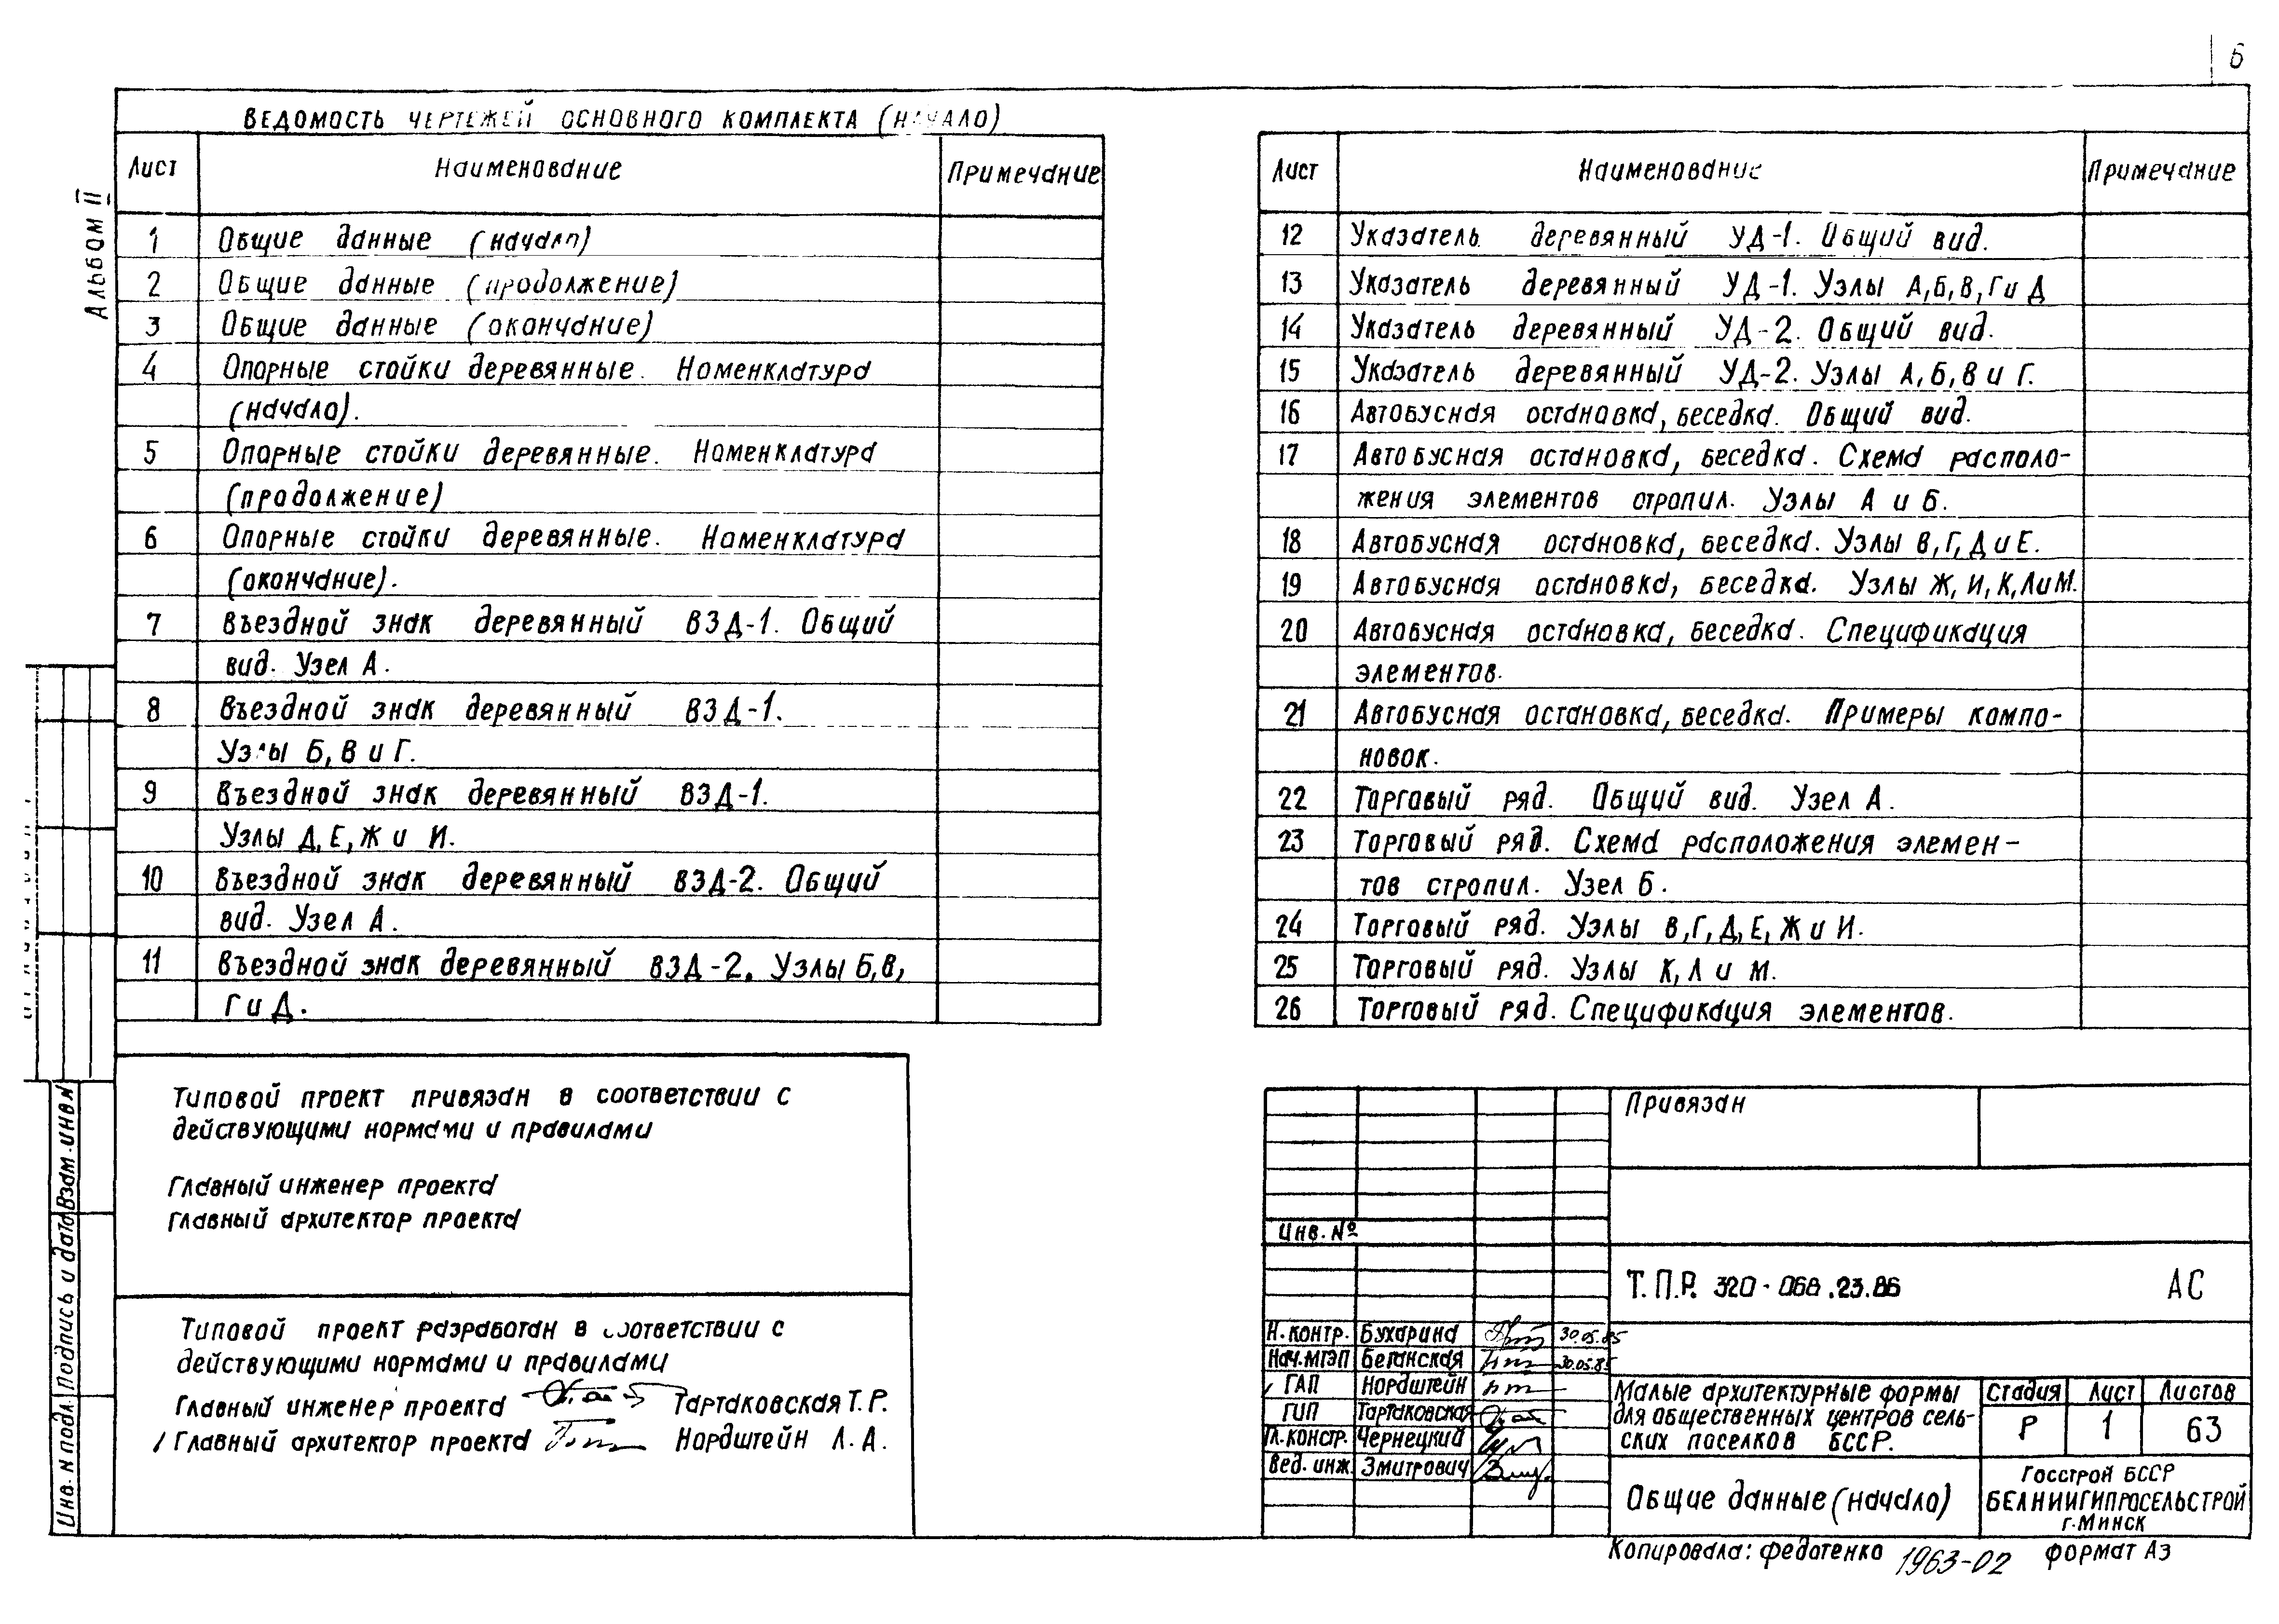 6
Альбом II
Ведомость чертежей основного комплекта (начало)
Лист Наименование Примечание
1 Общие данные (начало)
2 Общие данные (продолжение)
3 Общие данные (окончание)
4 Опорные стойки деревянные. Номенклатура
(начало).
5 Опорные стойки деревянные. Номенклатура
(продолжение)
6 Опорные стойки деревянные. Номенклатура
(окончание).
7 Въездной знак деревянный ВЗД-1. Общий
вид. Узел А.
8 Въездной знак деревянный ВЗД-1.
Узлы Б, В и Г.
9 Въездной знак деревянный ВЗД-1.
Узлы Д, Е, Ж и И.
10 Въездной знак деревянный ВЗД-2. Общий
вид. Узел А.
11 Въездной знак деревянный ВЗД-2. Узлы Б, В,
Г и Д.
Лист Наименование Примечание
12 Указатель деревянный УД-1. Общий вид.
13 Указатель деревянный УД-1. Узлы А, Б, В, Г и Д
14 Указатель деревянный УД-2. Общий вид.
15 Указатель деревянный УД-2. Узлы А, Б, В и Г.
16 Автобусная остановка, беседка. Общий вид.
17 Автобусная остановка, беседка. Схема располо-
жения элементов стропил. Узлы А и Б.
18 Автобусная остановка, беседка. Узлы В, Г, Д и Е.
19 Автобусная остановка, беседка. Узлы Ж, И, К, Л и М.
20 Автобусная остановка, беседка. Спецификация
элементов.
21 Автобусная остановка, беседка. Примеры компо-
новок.
22 Торговый ряд. Общий вид. Узел А.
23 Торговый ряд. Схема расположения элемен-
тов стропил. Узел Б.
24 Торговый ряд. Узлы В, Г, Д, Е, Ж и И.
25 Торговый ряд. Узлы К, Л и М.
26 Торговый ряд. Спецификация элементов.
Типовой проект привязан в соответствии с
действующими нормами и правилами
Главный инженер проекта
Главный архитектор проекта
Типовой проект разработан в соответствии с
действующими нормами и правилами
Главный инженер проекта Тартаковская Т.Р.
Главный архитектор проекта Нордштейн Л.А.
Взам. инв N
Подпись и дата
Инв. N подл.
Привязан
Инв. №
Т.П.Р. 320-068.23.86 АС
Н. контр. Бухарина 30.05.85
Нач. МТЭП Беганская 30.05.85
ГАП Нордштейн
ГИП Тартаковская
Гл. констр. Чернецкий
Вед. инж. Змитрович
Малые архитектурные формы
для общественных центров сель-
ских поселков БССР.
Стадия Лист Листов
Р 1 63
Общие данные (начало)
Госстрой БССР
БЕЛНИИГИПРОСЕЛЬСТРОЙ
г. Минск
Копировала: Федотенко 1963-02 формат А3